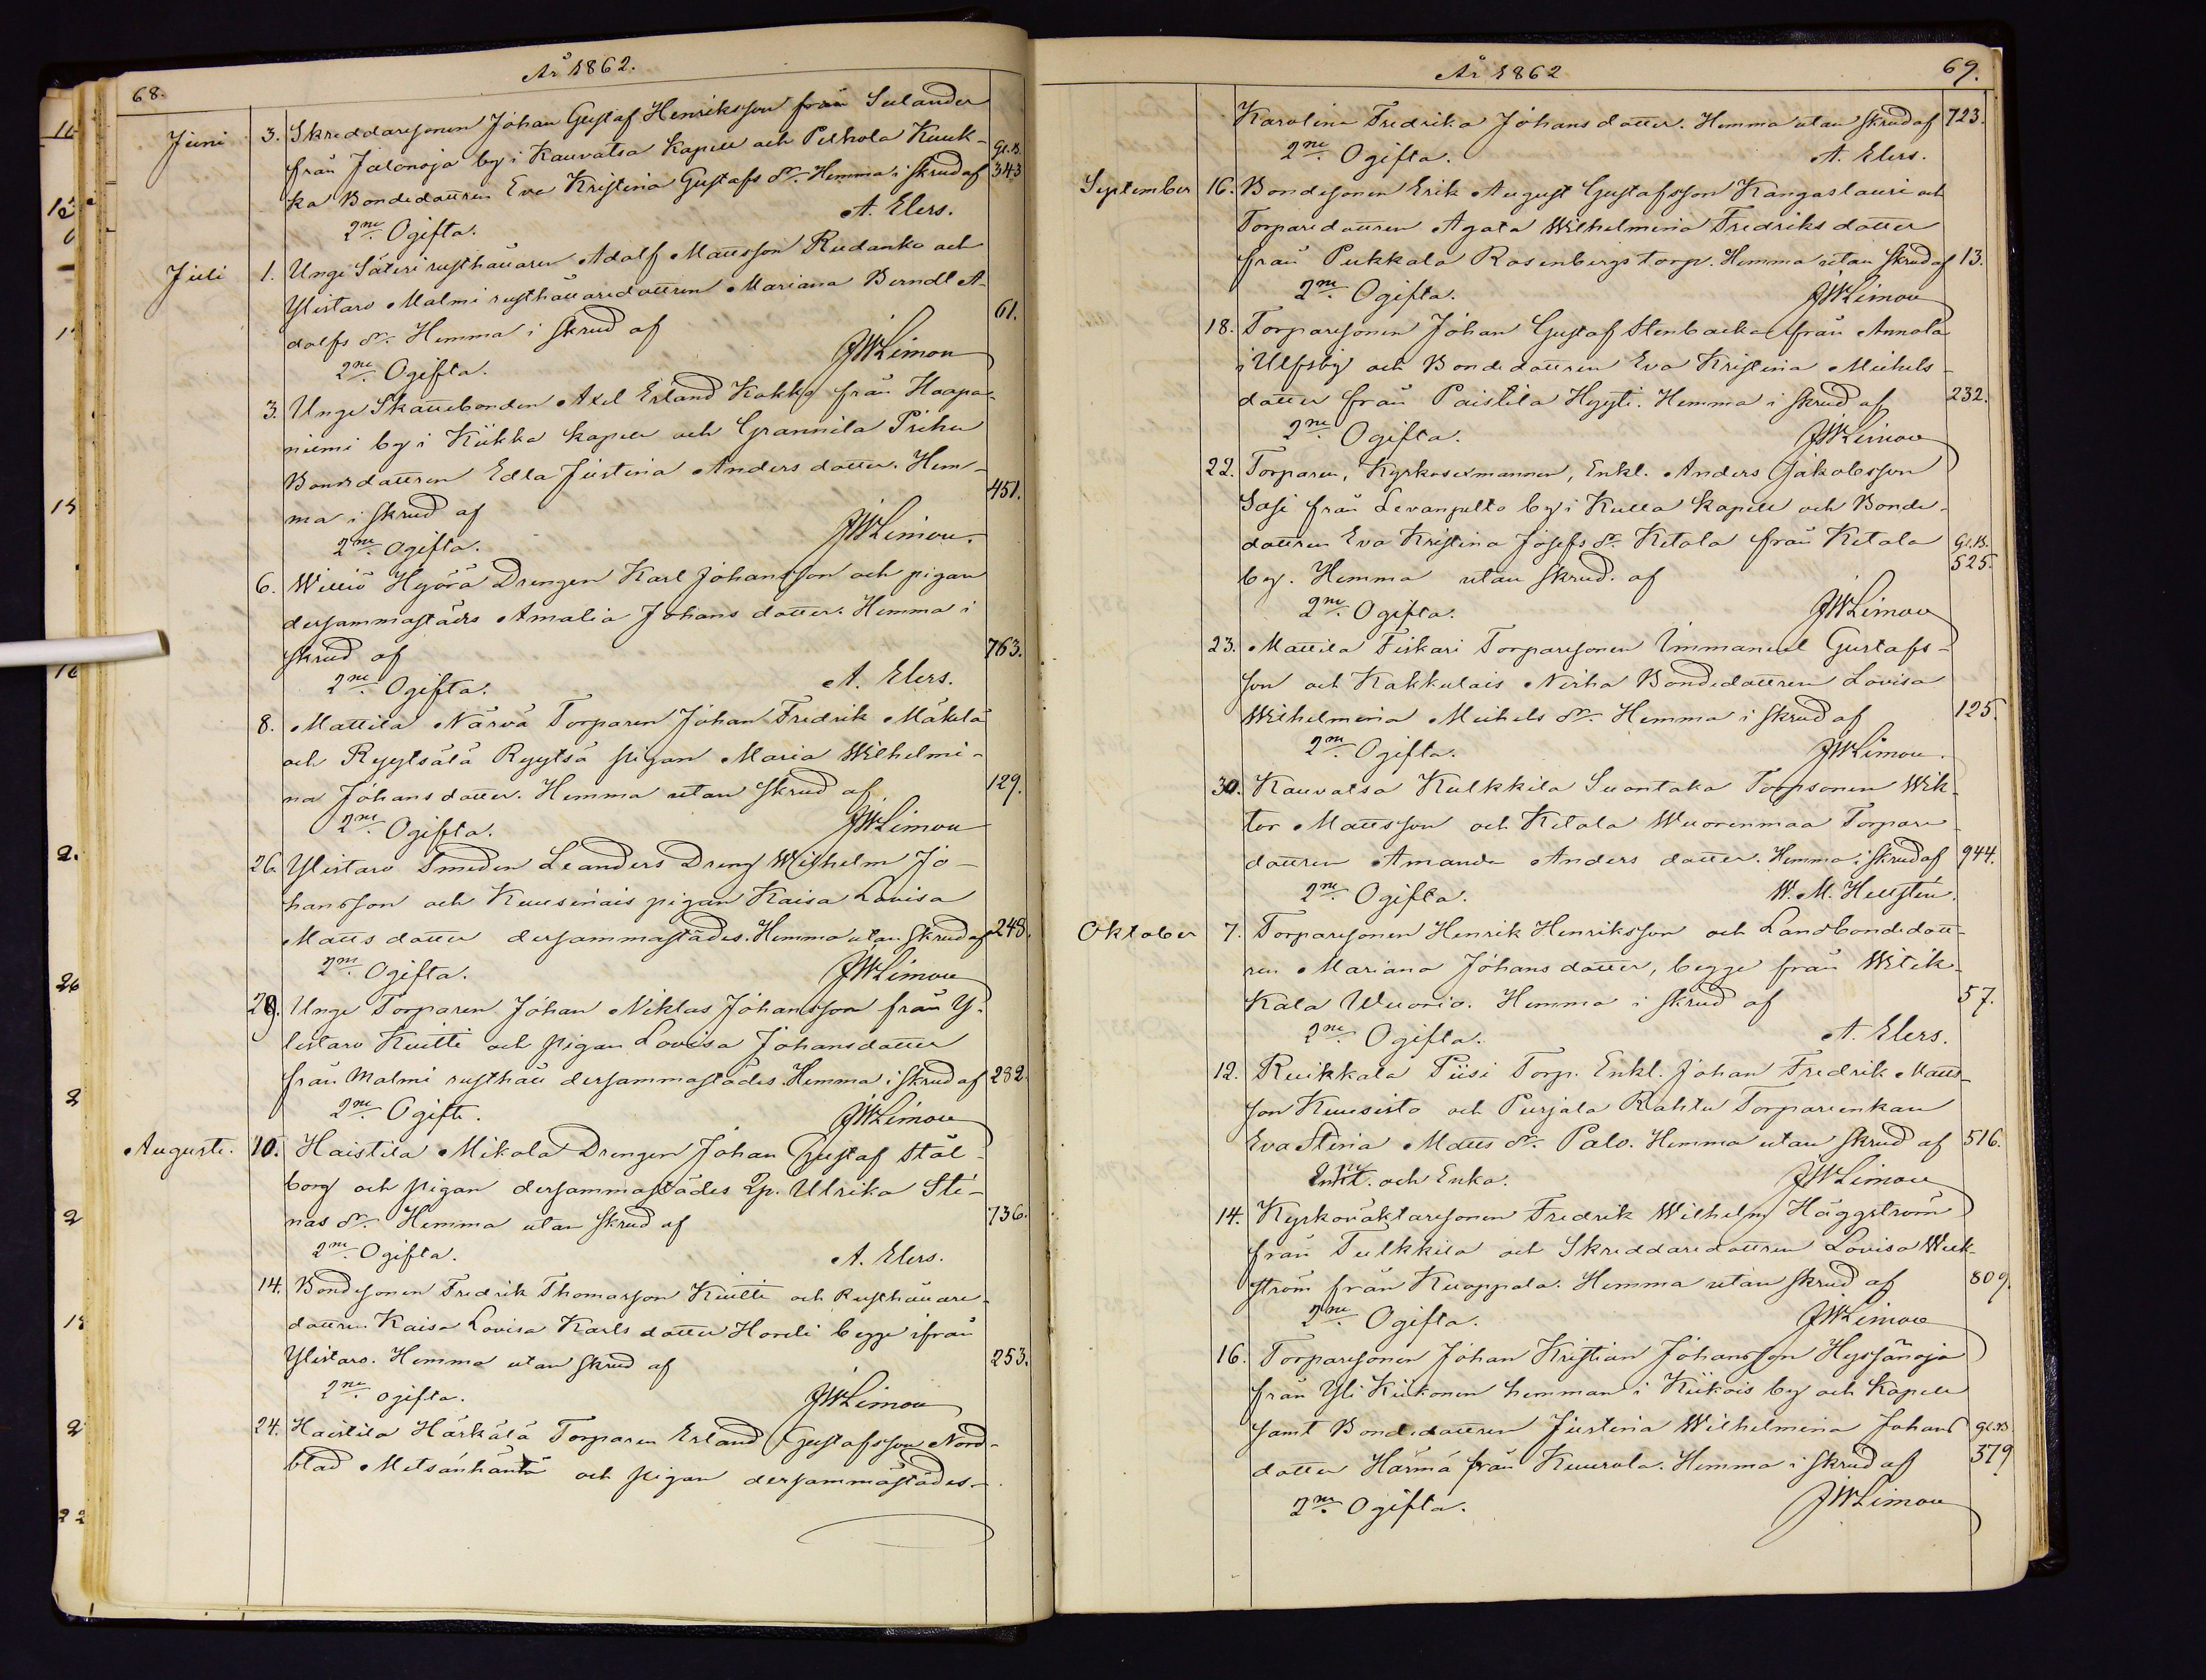 68.
År 1862.
Juni 3. Skreddaresonen Johan Gustaf Henriksson från Sulander
från Jalonoja by i Kauvatsa Kapell och Pelhola Kuuk- Gl.B.
ka Bondedottren Eva Kristina Gustafs dr. Hemma i skrud af 343
2ne Ogifta. A. Elers.
Juli 1. Unge Säterirusthållaren Adolf Mattsson Rudanko och
Ylistaro Malmi rusthållaredottren Mariana Berndl A-
dolfs dr. Hemma i skrud af 61.
2ne Ogifta. JWLimon
3. Unge Skattebonden Axel Erland Kokko från Haapa-
niemi by i Kiikka kapell och Grannila Prihu
Bondedottren Edla Justina Anders dotter. Hem-
ma i skrud af 451.
2ne ogifta. JWLimon.
6. Williö Hyörä Drengen Karl Johansson och pigan
dersammastäds Amalia Johans dotter. Hemma i
skrud af 763.
2ne Ogifta. A. Elers.
8. Mattila Närvä Torparen Johan Fredrik Mäkelä
och Ryytsälä Ryytsä pigan Maria Wilhelmi-
na Johans dotter. Hemma utan skrud af 129.
2ne Ogifta. JWLimon
26. Ylistaro Smeden Leanders Dreng Wilhelm Jo-
hansson och Kuusinais pigan Kaisa Lovisa
Matts dotter dersammastädes. Hemma utan skrud af 248.
2ne Ogifta. JWLimon
29. Unge Torparen Johan Niklas Johansson från Y-
listaro Kuitti och pigan Lovisa Johansdotter
från Malmi rusthåll dersammastädes. Hemma i skrud af 282.
2ne Ogifte. JWLimon
Augusti. 10. Haistila Mikola Drengen Johan Gustaf Stål-
borg och pigan dersammastädes Ulrika Ste-
nas dr. Hemma utan skrud af 736.
2ne Ogifta. A. Elers.
14. Bondesonen Fredrik Thomasson Kuitti och Rusthållare-
dottren Kaisa Lovisa Karls dotter Horeli begge ifrån
Ylistaro. Hemma utan skrud af 253.
2ne ogifta. JWLimon
24. Haistila Härkälä Torparen Erland Gustafsson Nord-
blad Metsänhäntä och pigan dersammastädes-
År 1862
69.
Karolina Fredrika Johans dotter. Hemma utan skrud af 723.
2ne Ogifta. A. Elers.
September 16. Bondesonen Erik August Gustafsson Kangaslauri och
Torparedottren Agata Wilhelmina Fredriks dotter
från Pukkala Rosenbergs torp. Hemma utan skrud af 13.
2ne Ogifta. JWLimon
18. Torparesonen Johan Gustaf Stenbacka från Annola
i Ulfsby och Bondedottren Eva Kristina Michels-
dotter från Paistila Hyyti. Hemma i skrud af 232.
2ne Ogifta. JWLimon
22. Torparen, Kyrkosexmannen, Enkl. Anders Jakobsson
Sasi från Levanpelto by i Kulla kapell och Bonde-
dottren Eva Kristina Josefs dr. Ketola från Ketola Gl.B.
by. Hemma utan skrud. af 525.
2ne Ogifta. JWLimon
23. Mattila Fiskari Torparesonen Immanuel Gustafs-
son och Kakkulais Nirha Bondedottren Lovisa
Wilhelmina Michels dr. Hemma i skrud af 125.
2ne Ogifta. JWLimon.
30. Kauvatsa Kulkkila Suontaka Torpsonen Wik-
tor Mattsson och Ketola Wuorenmaa Torpare-
dottren Amanda Anders dotter. Hemma i skrud af 944.
2ne Ogifta. W. M. Hellstén.
Oktober 7. Torparesonen Henrik Henriksson och Landbondedott-
ren Mariana Johans dotter, begge från Witik-
kala Wuorio. Hemma i skrud af 57.
2ne Ogifta. A. Elers.
12. Ruikkala Piisi Torp. Enkl. Johan Fredrik Matts-
son Kuusisto och Purjala Rahtu Torpareenkan
Eva Stina Matts dr. Palo. Hemma utan skrud af 516.
Enkl. och Enka. JWLimon
14. Kyrkovaktaresonen Fredrik Wilhelm Häggström
från Tulkkila och Skreddaredottren Lovisa Wek-
ström från Kuoppala. Hemma utan skrud af 809.
2ne Ogifta. JWLimon
16. Torparesonen Johan Kristian Johansson Hyssänoja
från Yli Kiikonen hemman i Kiikois by och Kapell
samt Bondedottren Justina Wilhelmina Johans Gl.B.
dotter Härmä från Kuurola. Hemma i skrud af 379
2ne Ogifta. JWLimon